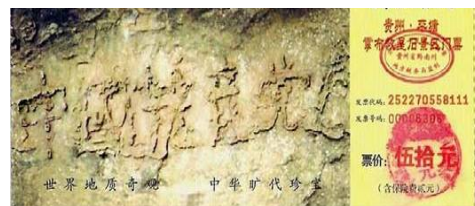 中國共産党
世界地质奇观 中华旷代珍宝
贵州·平塘
掌布救星石景区门票
贵州省黔南州
发票代码:252270558111
发票号码:00006306
票价:伍拾元
(含保险费贰元)